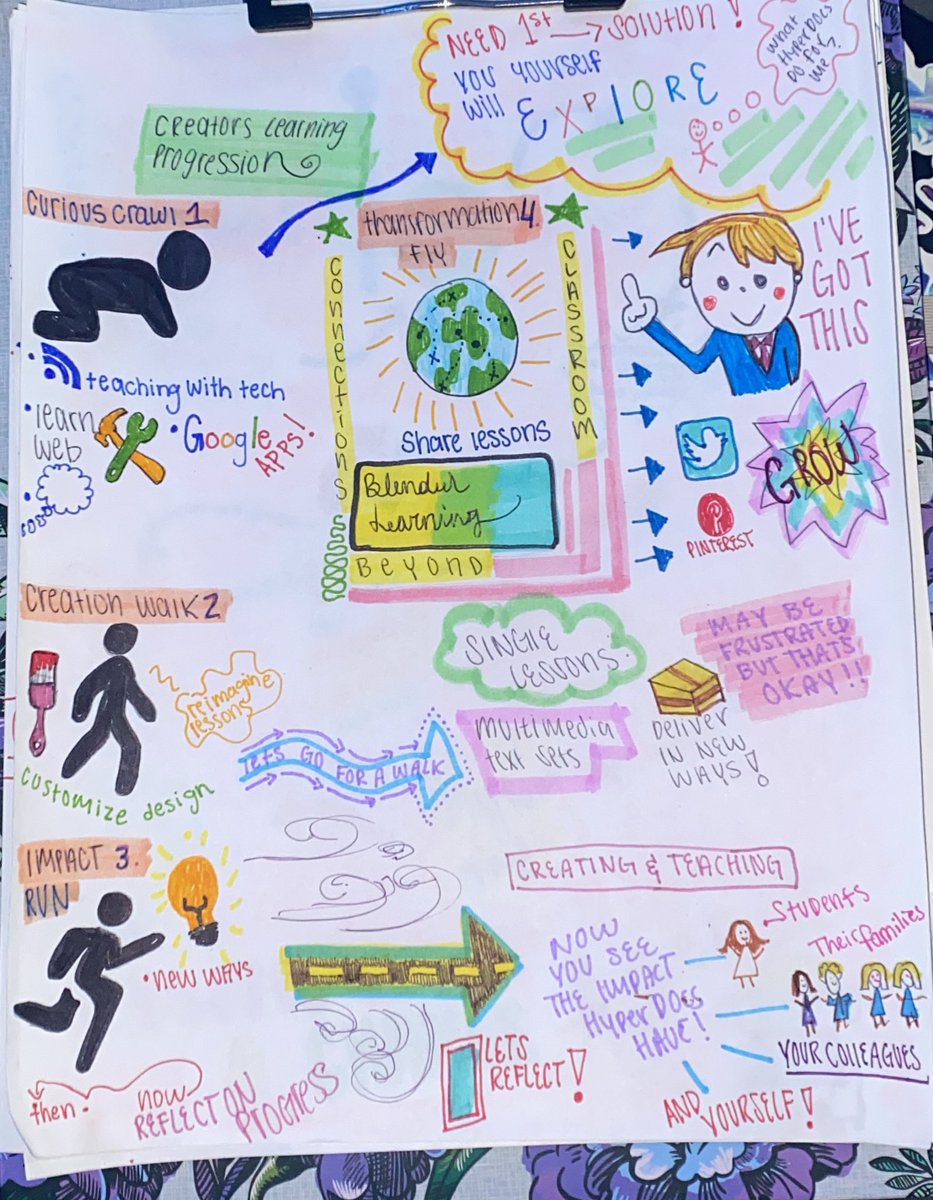 NEED 1st → SOLUTION!
YOU YOURSELF
WILL EXPLORE
What
HyperDocs
Do for
me?
Creators Learning
Progression
Curious Crawl 1
teaching with tech
• learn
web
• Google
APPS!
Transformation 4.
FLY
CONNECTIONS
CLASSROOM
Share lessons
Blendur
Learning
BEYOND
I'VE
GOT
THIS
GROW
PINTEREST
Creation Walk 2
reimagine
lessons
customize design
LETS GO FOR A WALK
SINGLE
LESSONS
multimedia
text sets
Deliver
IN NEW
WAYS!
MAY BE
FRUSTRATED
BUT THATS
OKAY!!
IMPACT 3.
RUN
• new ways
then. now
REFLECT ON
PROGRESS
LETS
REFLECT!
CREATING & TEACHING
NOW
YOU SEE
THE IMPACT
HyperDocs
HAVE!
Students
Their families
YOUR COLLEAGUES
AND YOURSELF!